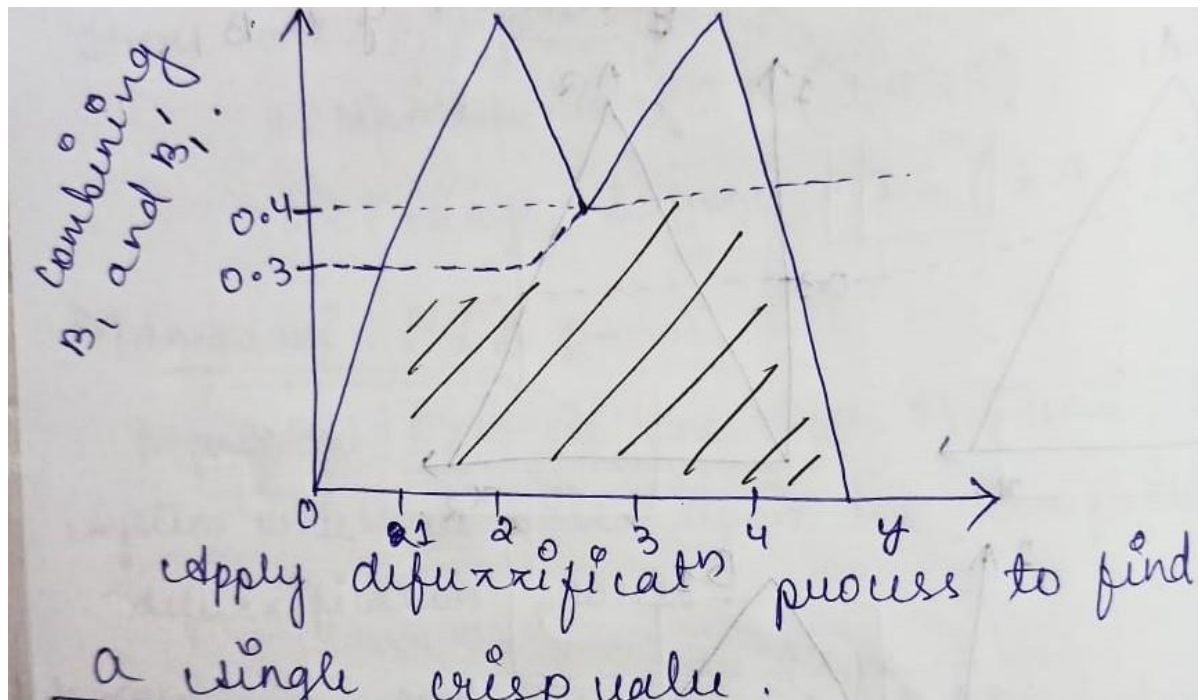 Combining
B₁ and B₁'.
0.4
0.3
0 1 2 3 4 y
Apply difuzzificatⁿ process to find
a single crisp value.